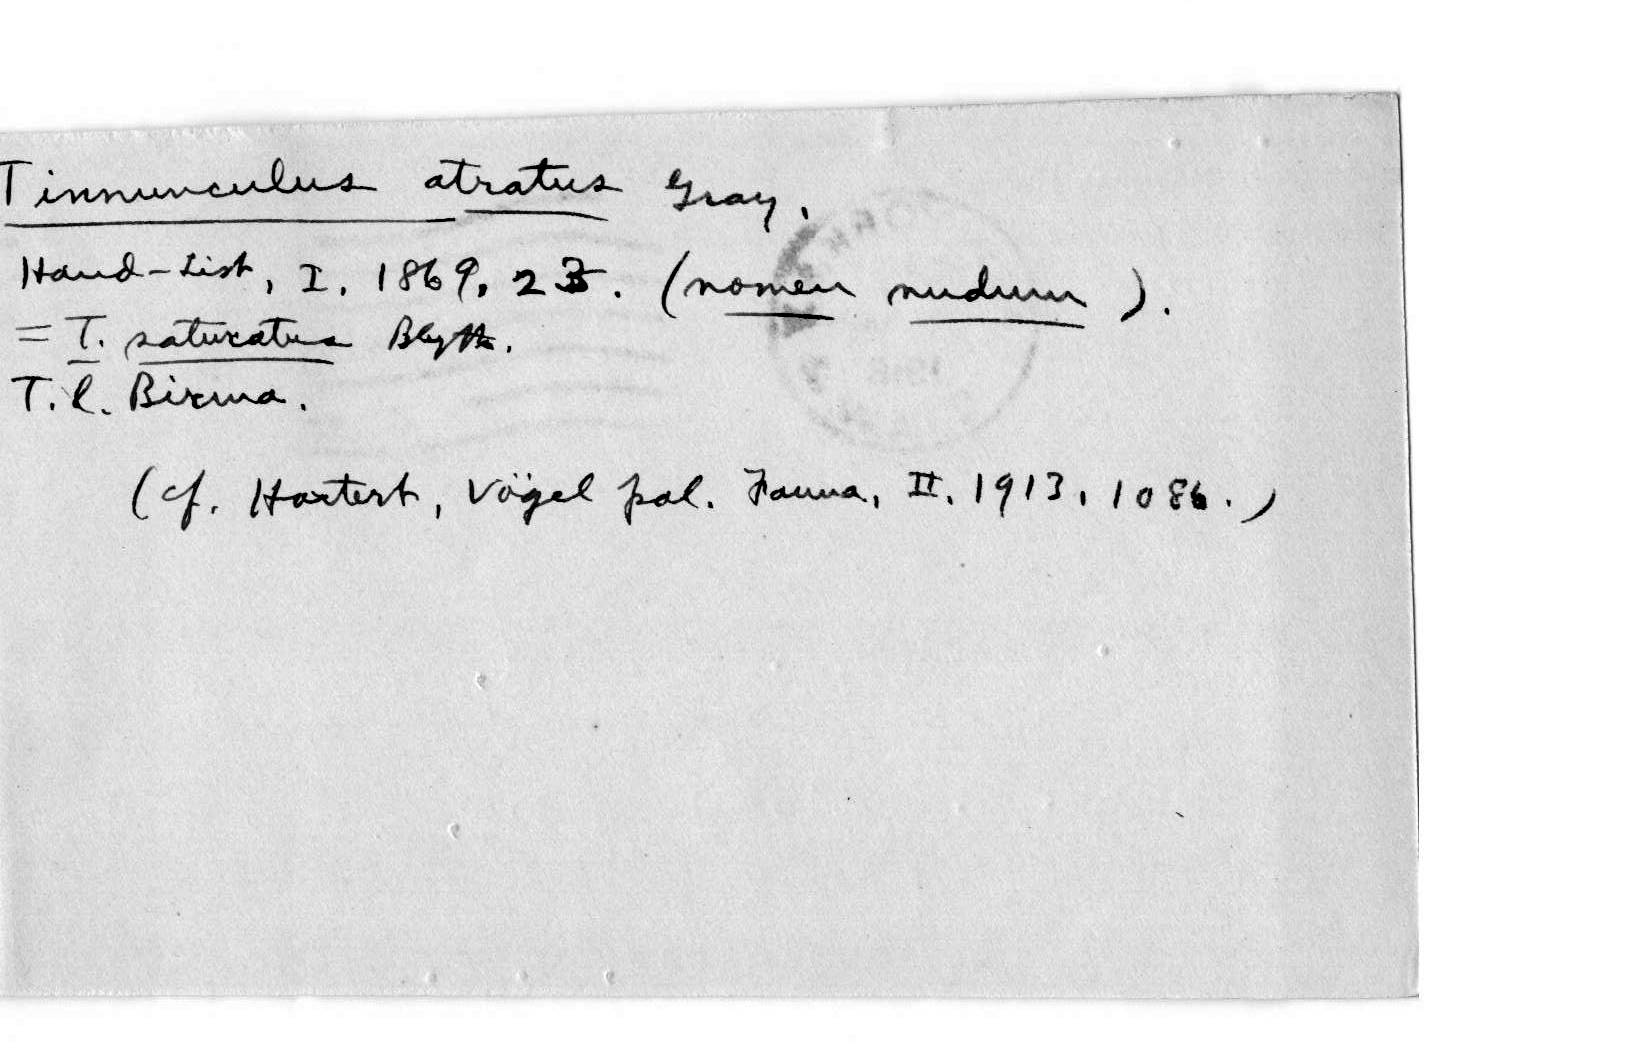 Tinnunculus atratus Gray.
Hand-List, I. 1869, 23. (nomen nudum).
= T. saturatus Blyth.
T.l. Birma.
(cf. Hartert, Vögel pal. Fauna, II. 1913, 1086.)